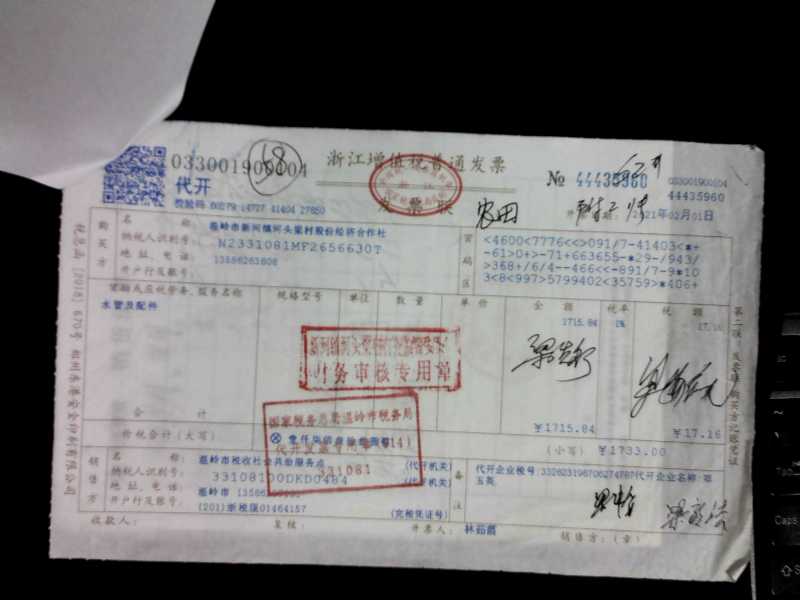 033001900104
68
浙江增值税普通发票
№ 44435960
033001900104
44435960
代开
发票联
校验码 60279 14727 41404 27850
农田
2021年02月01日
购买方
名称:
温岭市新河镇河头梁村股份经济合作社
纳税人识别号:
N2331081MF2656630T
地址、电话:
13586263808
开户行及账号:
密码区
<4600<7776<<>091/7-41403<*+
-61>0+>-71+663655-*29-/943/
>368+/6/4--466<<-891/7-9*10
3<8<997>5799402<35759>*406+
货物或应税劳务、服务名称
规格型号
单位
数量
单价
金额
税率
税额
水管及配件
1715.84
1%
17.16
财务审核专用章
合计
￥1715.84
￥17.16
价税合计(大写)
(小写)
￥1733.00
国家税务总局温岭市税务局
代开发票专用章
331081
销售方
名称:
温岭市税收社会共治服务点
(代开机关)
纳税人识别号:
3310810ODKD0484
(代开机关)
地址、电话:
温岭市
开户行及账号:
(201)浙税银01464157
(完税凭证号)
备注
代开企业税号:332623196706274787代开企业名称:
收款人:
复核:
开票人:
林茹霞
销售方:(章)
第二联:发票联 购买方记账凭证